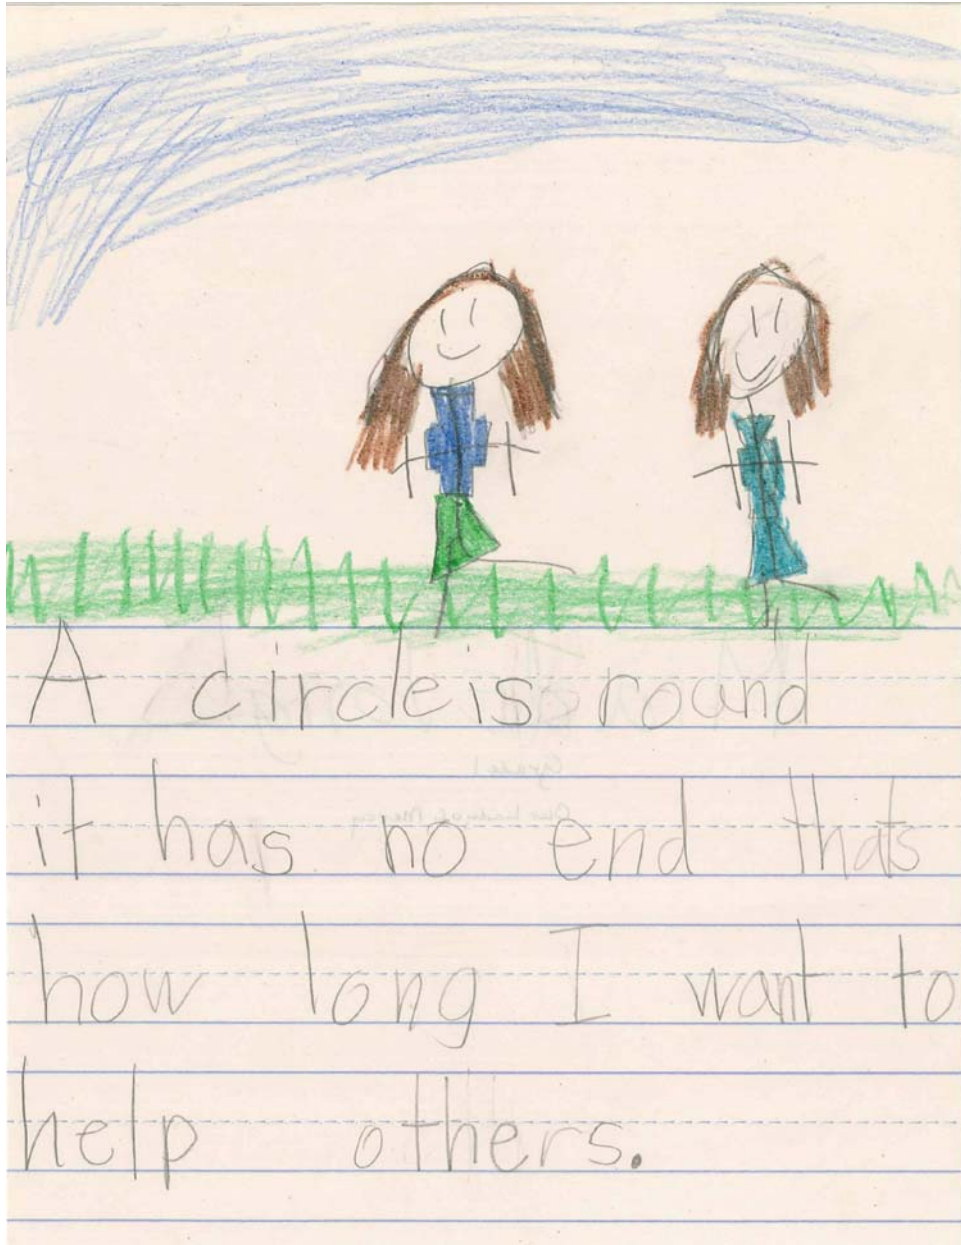 A circle is round
it has no end thats
how long I want to
help others.